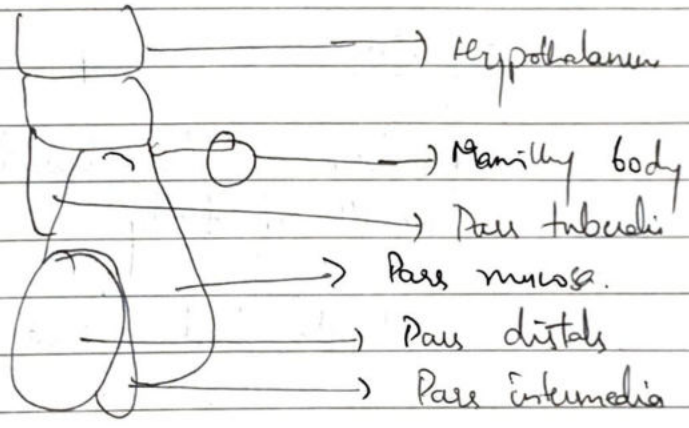 Hypothalamus
Mamillary body
Pars tuberalis
Pars mucosa.
Pars distals
Pars intermedia